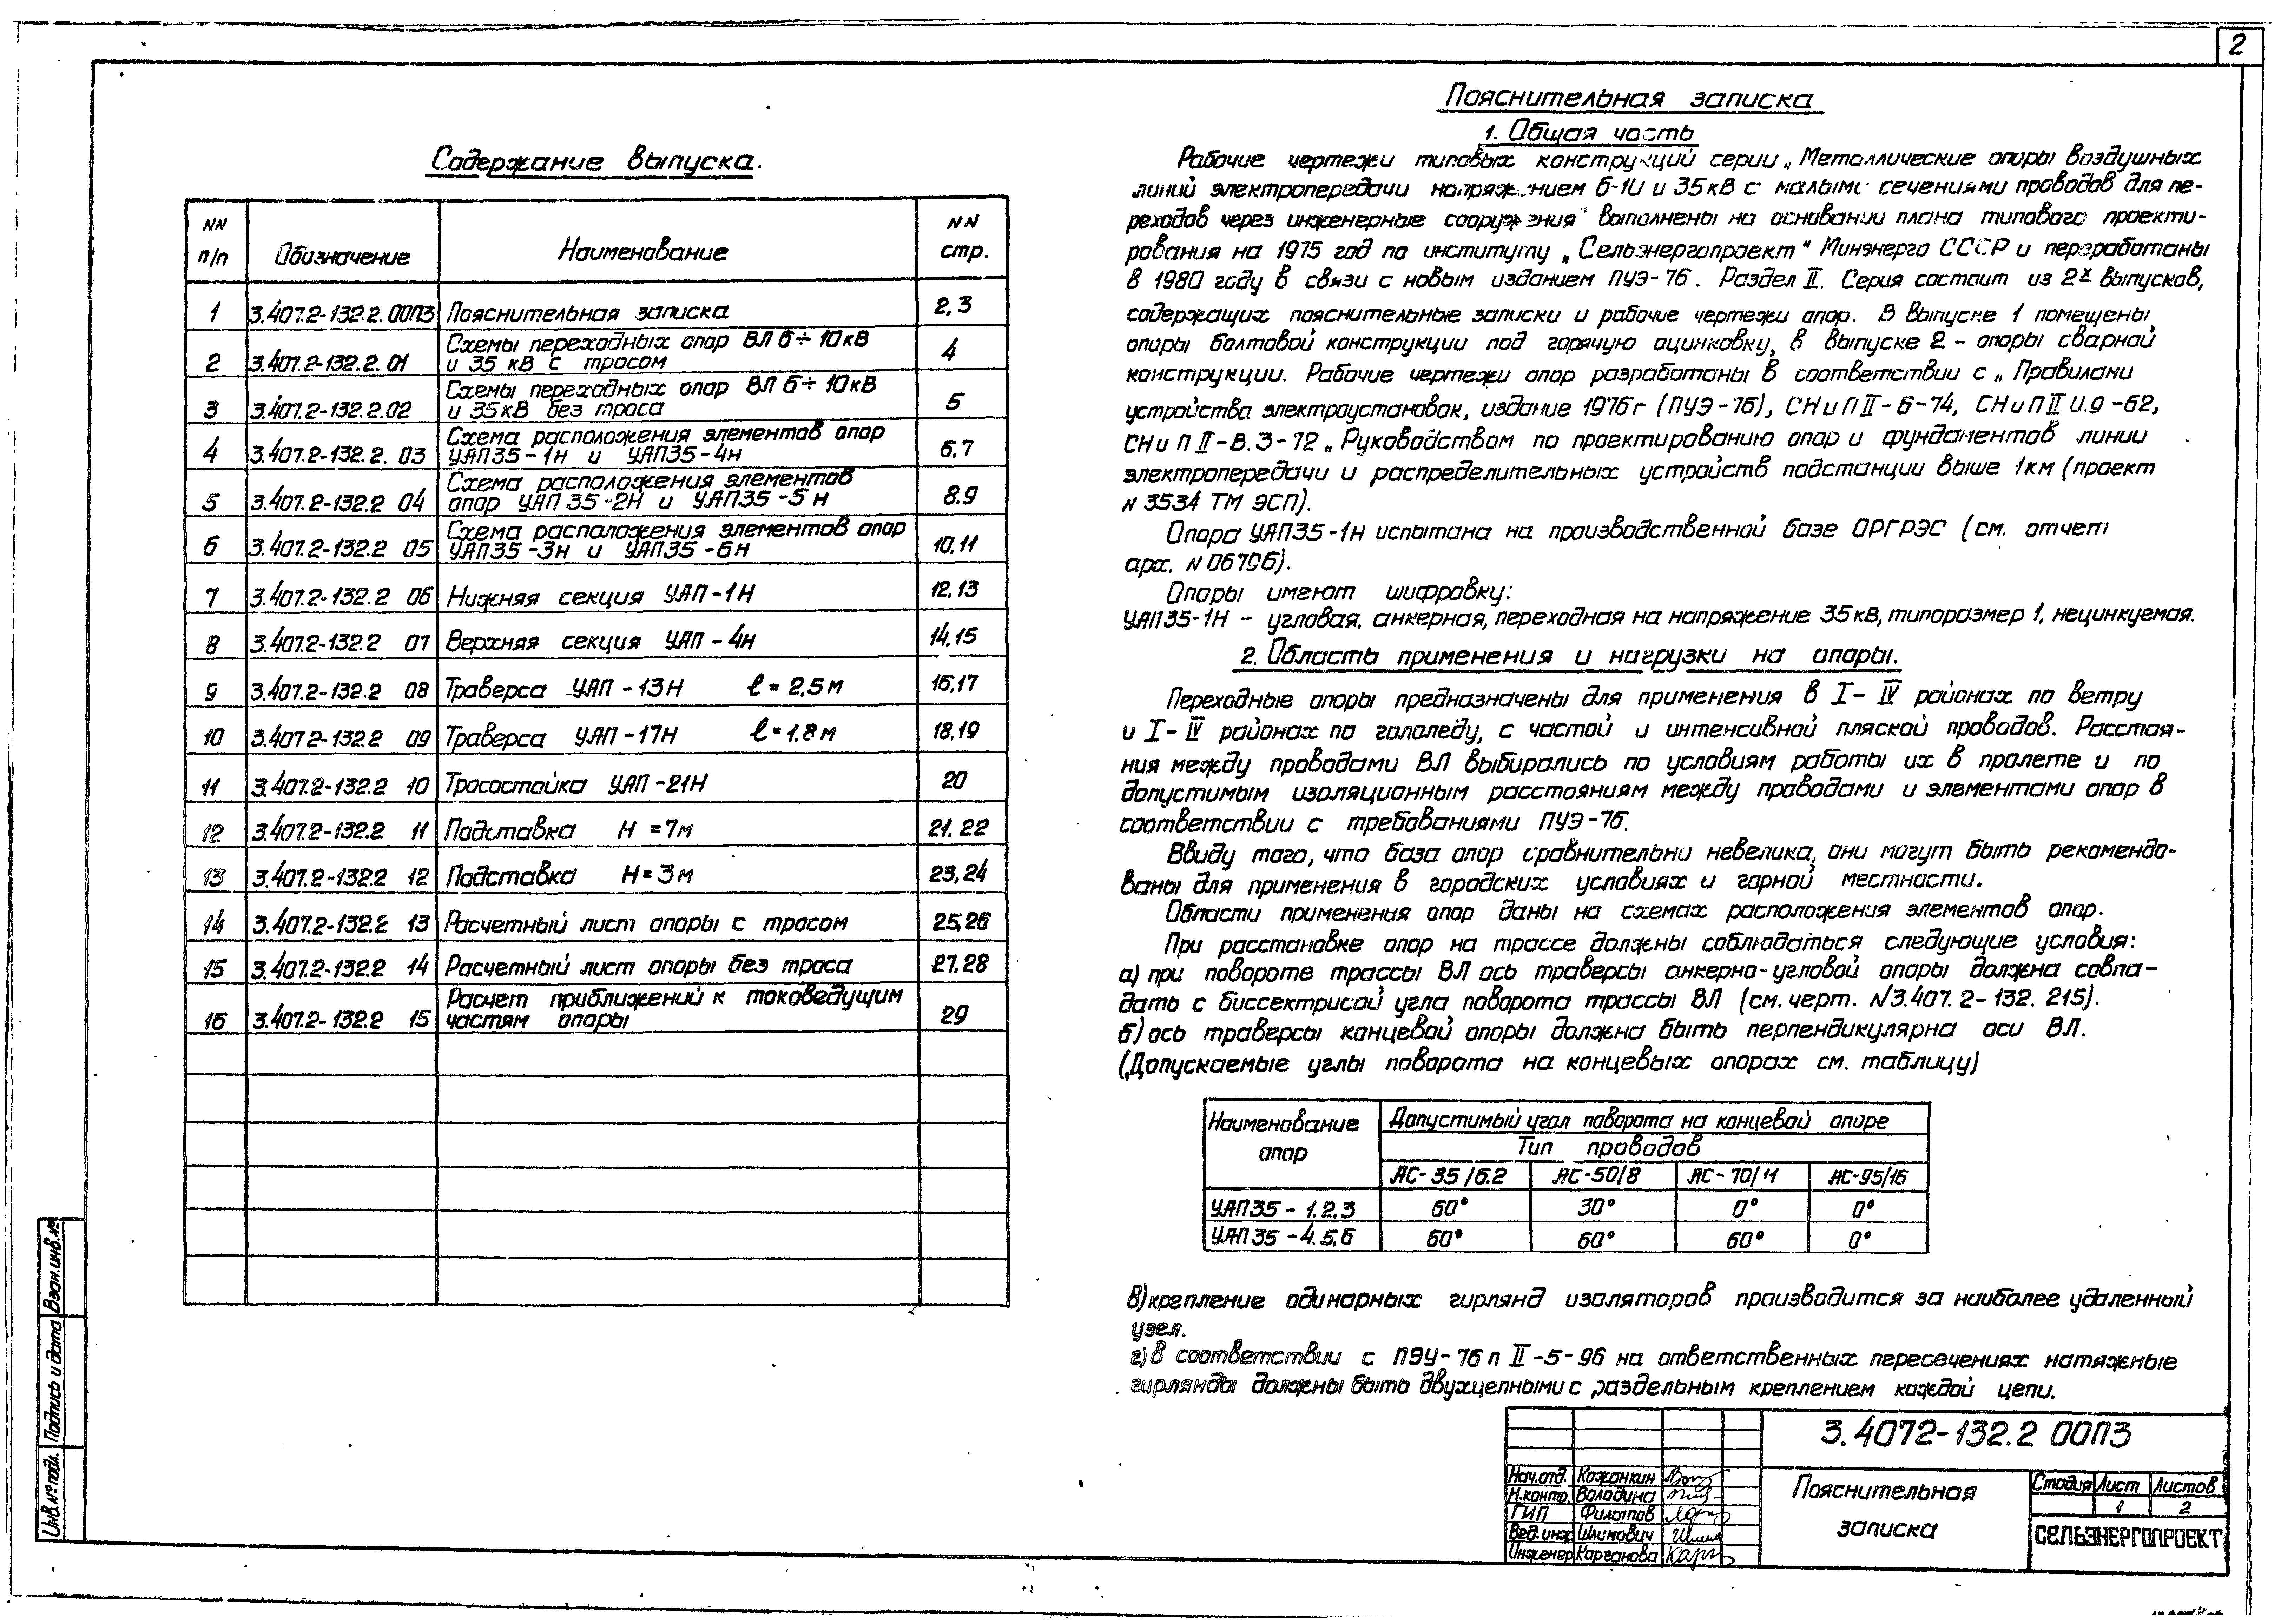 2
Содержание выпуска.
NN п/п | Обозначение | Наименование | NN стр.
1 | 3.407.2-132.2.00ПЗ | Пояснительная записка | 2,3
2 | 3.407.2-132.2.01 | Схемы переходных опор ВЛ 6÷10кВ и 35 кВ с тросом | 4
3 | 3.407.2-132.2.02 | Схемы переходных опор ВЛ 6÷10кВ и 35кВ без троса | 5
4 | 3.407.2-132.2.03 | Схема расположения элементов опор УАП35-1н и УАП35-4н | 6,7
5 | 3.407.2-132.2 04 | Схема расположения элементов опор УАП 35-2Н и УАП35-5н | 8.9
6 | 3.407.2-132.2 05 | Схема расположения элементов опор УАП35-3н и УАП35-6н | 10,11
7 | 3.407.2-132.2 06 | Нижняя секция УАП-1Н | 12,13
8 | 3.407.2-132.2 07 | Верхняя секция УАП-4н | 14,15
9 | 3.407.2-132.2 08 | Траверса УАП-13Н ℓ=2,5м | 16,17
10 | 3.407.2-132.2 09 | Траверса УАП-17Н ℓ=1.8м | 18,19
11 | 3.407.2-132.2 10 | Тросостойка УАП-21Н | 20
12 | 3.407.2-132.2 11 | Подставка Н=7м | 21.22
13 | 3.407.2-132.2 12 | Подставка Н=3м | 23,24
14 | 3.407.2-132.2 13 | Расчетный лист опоры с тросом | 25,26
15 | 3.407.2-132.2 14 | Расчетный лист опоры без троса | 27.28
16 | 3.407.2-132.2 15 | Расчет приближений к токоведущим частям опоры | 29
Пояснительная записка
1. Общая часть
Рабочие чертежи типовых конструкций серии „Металлические опоры воздушных
линий электропередачи напряжением 6-10 и 35кВ с малыми сечениями проводов для пе-
реходов через инженерные сооружения" выполнены на основании плана типового проекти-
рования на 1975 год по институту „Сельэнергопроект" Минэнерго СССР и переработаны
в 1980 году в связи с новым изданием ПУЭ-76. Раздел II. Серия состоит из 2х выпусков,
содержащих пояснительные записки и рабочие чертежи опор. В выпуске 1 помещены
опоры болтовой конструкции под горячую оцинковку, в выпуске 2 - опоры сварной
конструкции. Рабочие чертежи опор разработаны в соответствии с „Правилами
устройства электроустановок, издание 1976г (ПУЭ-76), СНиП II-6-74, СНиП II И.9-62,
СНиП II-В.3-72 „Руководством по проектированию опор и фундаментов линии
электропередачи и распределительных устройств подстанции выше 1км (проект
N 3534 ТМ ЭСП).
Опора УАП35-1н испытана на производственной базе ОРГРЭС (см. отчет
арх. N 06796).
Опоры имеют шифровку:
УАП35-1Н - угловая, анкерная, переходная на напряжение 35кВ, типоразмер 1, нецинкуемая.
2. Область применения и нагрузки на опоры.
Переходные опоры предназначены для применения в I-IV районах по ветру
и I-IV районах по гололёду, с частой и интенсивной пляской проводов. Расстоя-
ния между проводами ВЛ выбирались по условиям работы их в пролете и по
допустимым изоляционным расстояниям между проводами и элементами опор в
соответствии с требованиями ПУЭ-76.
Ввиду того, что база опор сравнительно невелика, они могут быть рекомендо-
ваны для применения в городских условиях и горной местности.
Области применения опор даны на схемах расположения элементов опор.
При расстановке опор на трассе должны соблюдаться следующие условия:
а) при повороте трассы ВЛ ось траверсы анкерно-угловой опоры должна совпа-
дать с биссектрисой угла поворота трассы ВЛ (см. черт. N3.407.2-132.215).
б) ось траверсы концевой опоры должна быть перпендикулярна оси ВЛ.
(Допускаемые углы поворота на концевых опорах см. таблицу)
Наименование опор | Допустимый угол поворота на концевой опоре
Тип проводов
АС-35/6.2 | АС-50/8 | АС-70/11 | АС-95/16
УАП35-1.2.3 | 60° | 30° | 0° | 0°
УАП35-4.5,6 | 60° | 60° | 60° | 0°
в) крепление одинарных гирлянд изоляторов производится за наиболее удаленный
узел.
г) В соответствии с ПЭУ-76 п II-5-96 на ответственных пересечениях натяжные
гирлянды должны быть двухцепными с раздельным креплением каждой цепи.
3.4072-132.2 00ПЗ
Нач.отд. Кожанкин
Н.контр. Володина
ГИП Филатов
Вед.инж Шлимович
Инженер Карганова
Пояснительная
записка
Стадия Лист Листов
1 2
СЕЛЬЭНЕРГОПРОЕКТ
Взам.инв.№
Подпись и дата
Инв.№подл.